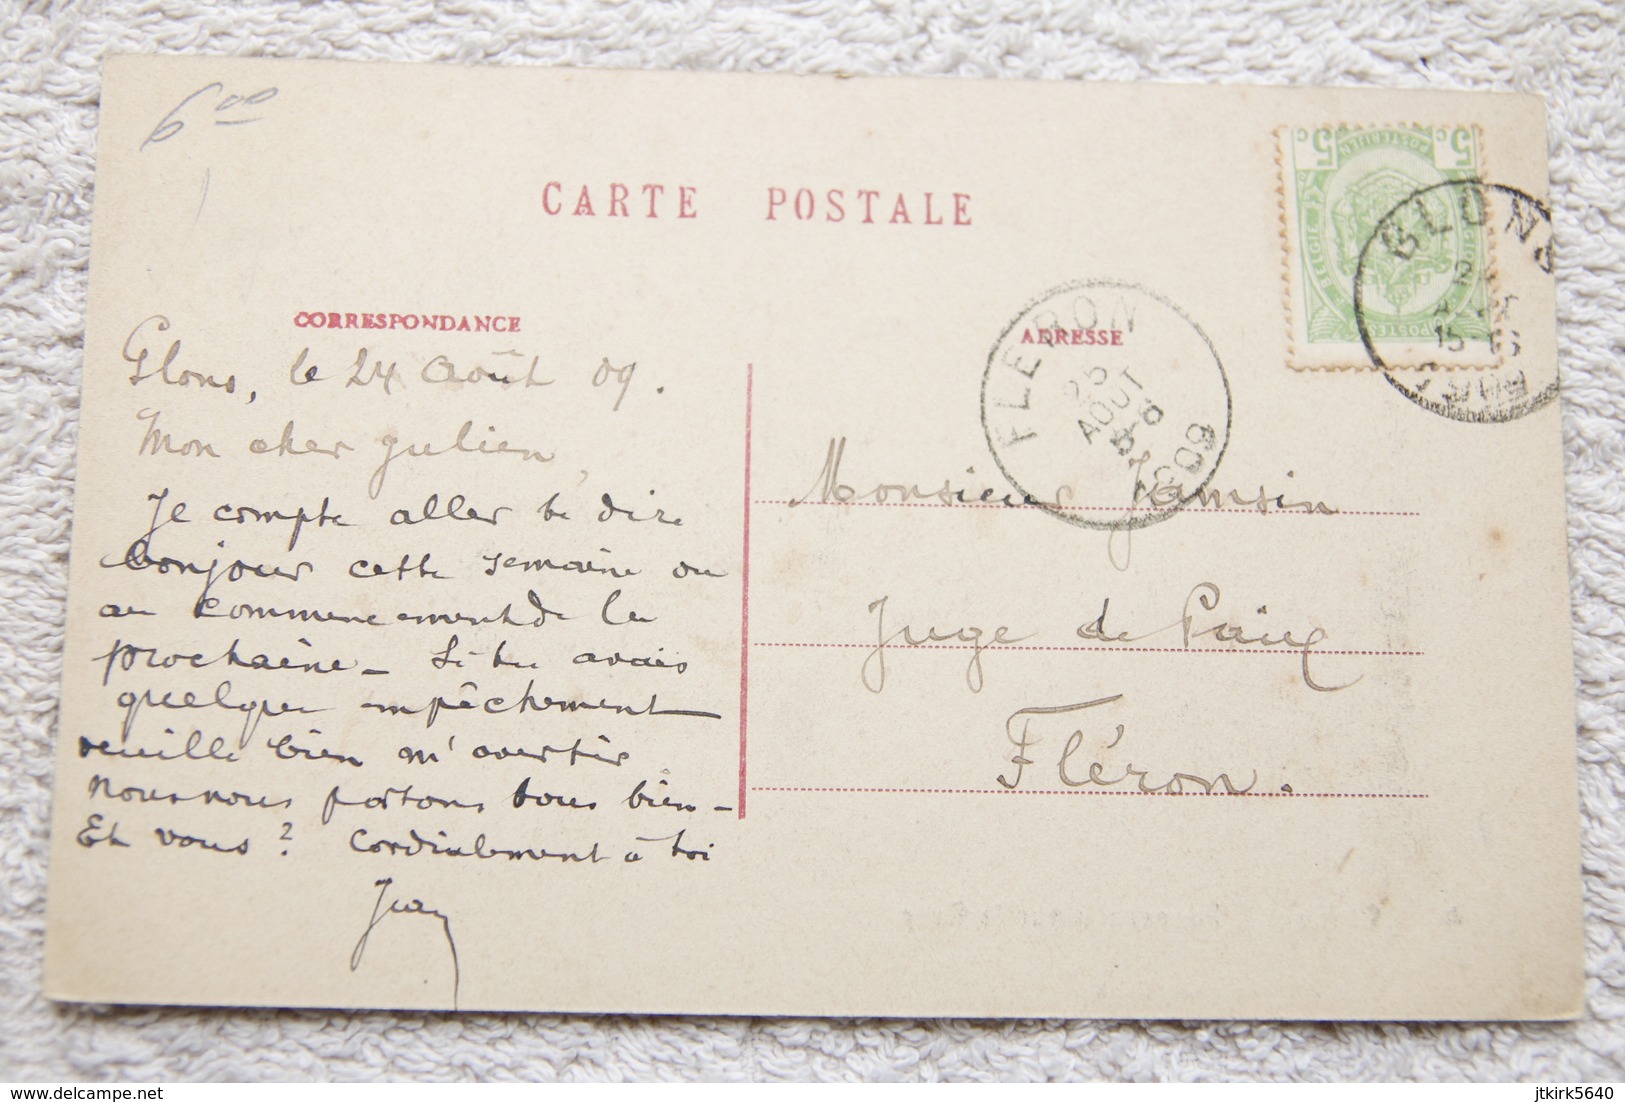 6⁰⁰
CARTE POSTALE
5 c 5 c
POSTERIJEN
BELGIE
POSTES
GLONS
15-16
CORRESPONDANCE
ADRESSE
FLERON
25
AOUT
1909
Glons, le 24 Août 09.
Mon cher Julien,
Je compte aller te dire
bonjour cette semaine ou
au commencement de la
prochaine - Si tu avais
quelque empêchement
veuille bien m'avertir
Nous nous portons tous bien -
Et vous ? Cordialement à toi
Monsieur Jamsin
Juge de Paix
Fléron.
delcampe.net
jtkirk5640